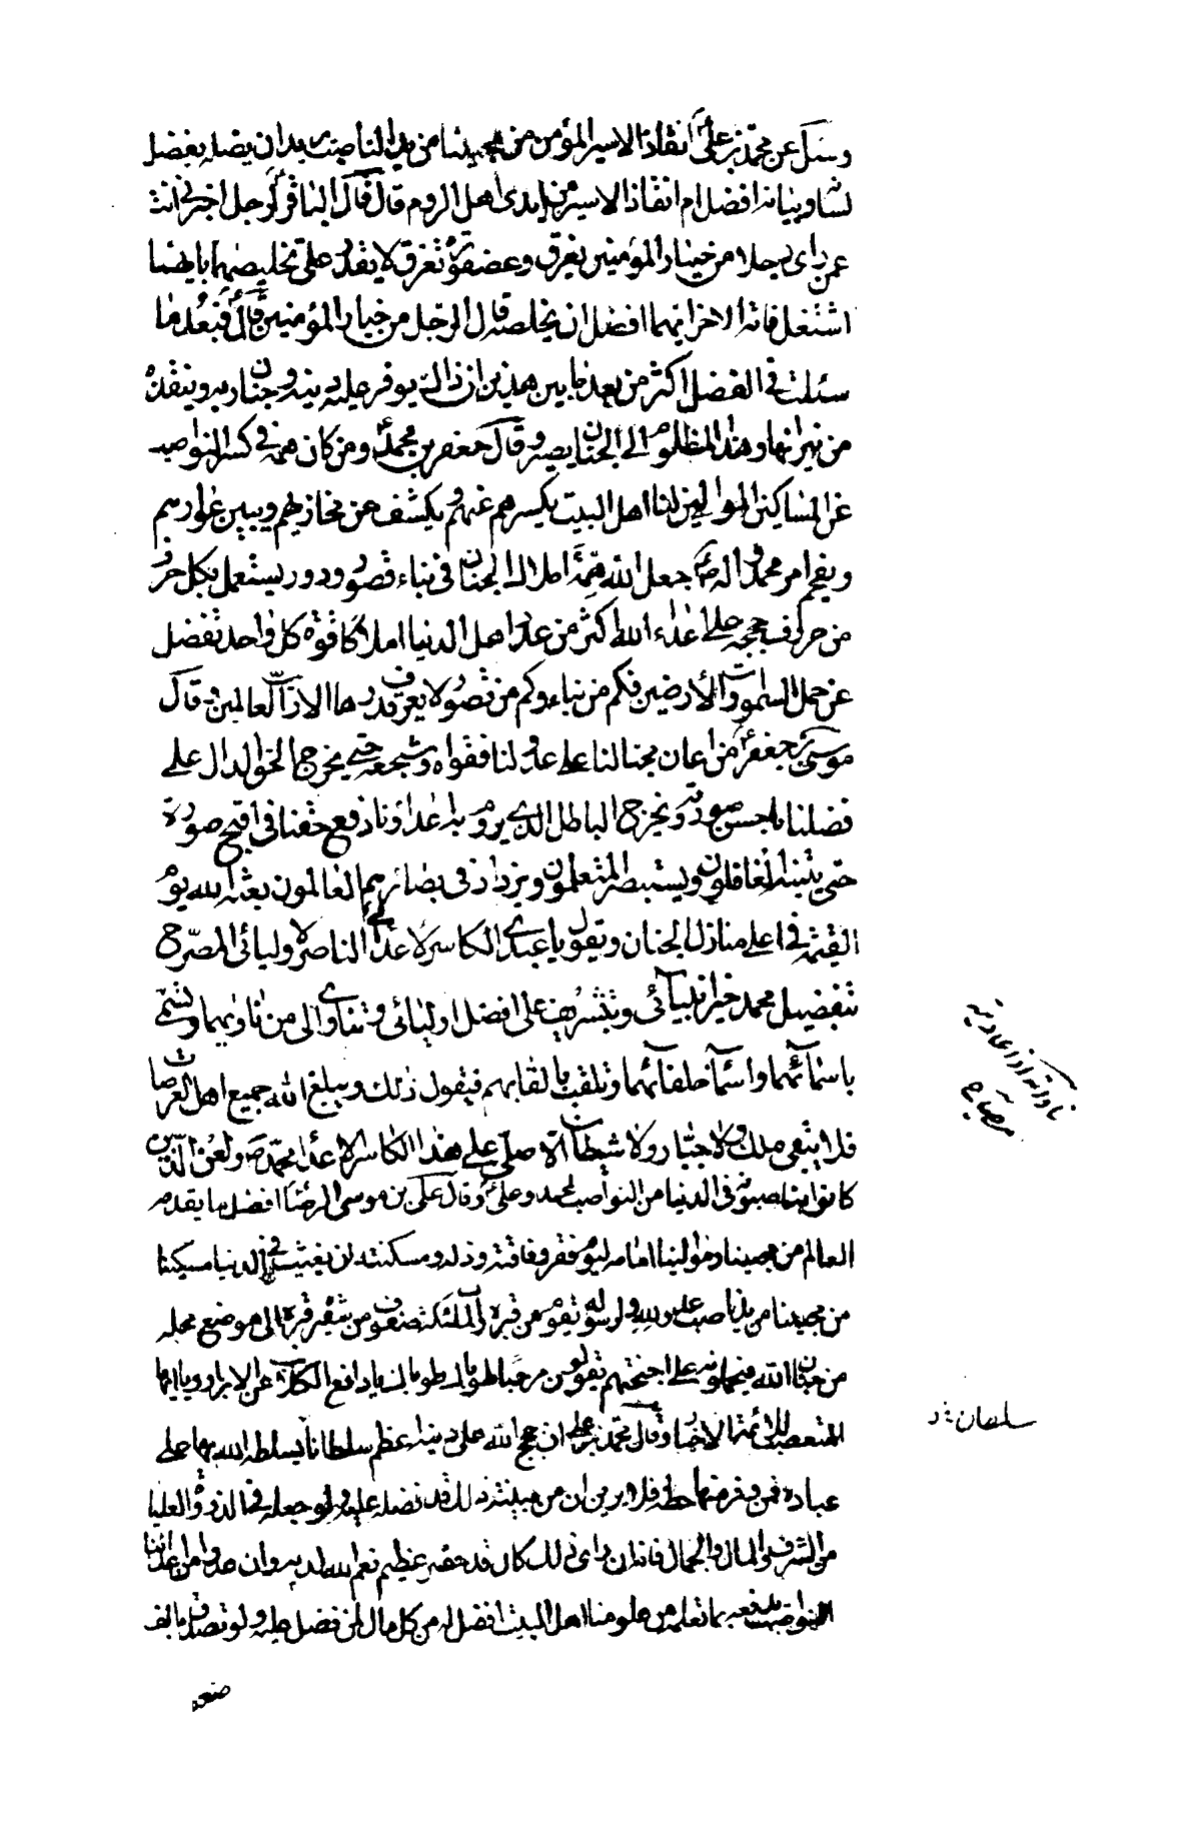 وسئل عن محمد بن علی ع انقاذ الاسیر المؤمن من محبینا من ید الناصب یرید ان یضله بفضل
لسانه وبیانه افضل ام انقاذ الاسیر من ایدی اهل الروم قال قال الباقر ع لرجل اخبرنی انت
عمن رای رجلا من خیار المؤمنین یغرق وعصفورة تغرق لا یقدر علی تخلیصهما بایهما
اشتغل فاته الاخر ایهما افضل ان یخلصه قال الرجل من خیار المؤمنین قال ع فبعد ما
سئلت فی الفضل اکثر من بعد ما بین هذین ان ذاک یوفر علیه دینه وجنان ربه وینقذه
من نیرانها وهذا المظلوم الی الجنان یصیر وقال جعفر بن محمد ع ومن کان همه فی کسر النواصب
عن المساکین الموالین لنا اهل البیت یکسرهم عنهم ویکشف عن مخازیهم ویبین عوارهم
ویفخم امر محمد واله ص جعل الله همة املاک الجنان فی بناء قصور ودور یستعمل بکل حرف
من حروف حججه علی اعداء الله اکثر من عدد اهل الدنیا املاکا قوة کل واحد تفضل
عن حمل السموات والارضین فکم من بناء وکم من قصور لا یعرف قدرها الا رب العالمین وقال
موسی بن جعفر ع من اعان محبا لنا علی عدو لنا فقواه وشجعه حتی یخرج الحق الدال علی
فضلنا باحسن صورته ویخرج الباطل الذی یروم به اعداؤنا دفع حقنا فی اقبح صورة
حتی یتنبه الغافلون ویستبصر المتعلمون ویزداد فی بصائرهم العالمون بعثه الله یوم
القیمة فی اعلی منازل الجنان ویقول یا عبدی الکاسر لاعدائی الناصر لاولیائی المصرح
بتفضیل محمد خیر انبیائی وبتشریف علی افضل اولیائی وتناوی الی من ناواهما وتسمی
باسمائهما واسماء خلفائهما وتلقب بالقابهم فیقول ذلک ویبلغ الله جمیع اهل العرصات
فلا یبقی ملک ولا جبار ولا شیطان الا صلی علی هذا الکاسر لاعداء محمد ص ولعن الذین
کانوا یناصبونه فی الدنیا من النواصب لمحمد وعلی ع وقال علی بن موسی الرضا ع افضل ما یقدمه
العالم من محبینا وموالینا امامه لیوم فقره وفاقته وذله ومسکنته ان یغیث فی الدنیا مسکینا
من محبینا من ید ناصب عدو لله ولرسوله یقوم من قبره والملئکة صفوف من شفیر قبره الی موضع محله
من جنان الله فیحملونه علی اجنحتهم یقولون مرحبا طوباک طوباک یا دافع الکلاب عن الابرار ویا ایها
المتعصب للائمة الاخیار وقال محمد بن علی ع ان حجج الله علی دینه اعظم سلطانا یسلط الله بها علی
عباده فمن وفر منها حظه فلا یرین ان من منعه ذلک قد فضله علیه ولو جعله فی الذروة العلیا
من الشرف والمال والجمال فانه ان رای ذلک کان قد حقر عظیم نعم الله لدیه وان عدوا من اعدائنا
النواصب یدفعه بما تعلمه من علومنا اهل البیت افضل له من کل مال لمن فضل علیه ولو تصدق بالف
ضعفه
سلطان